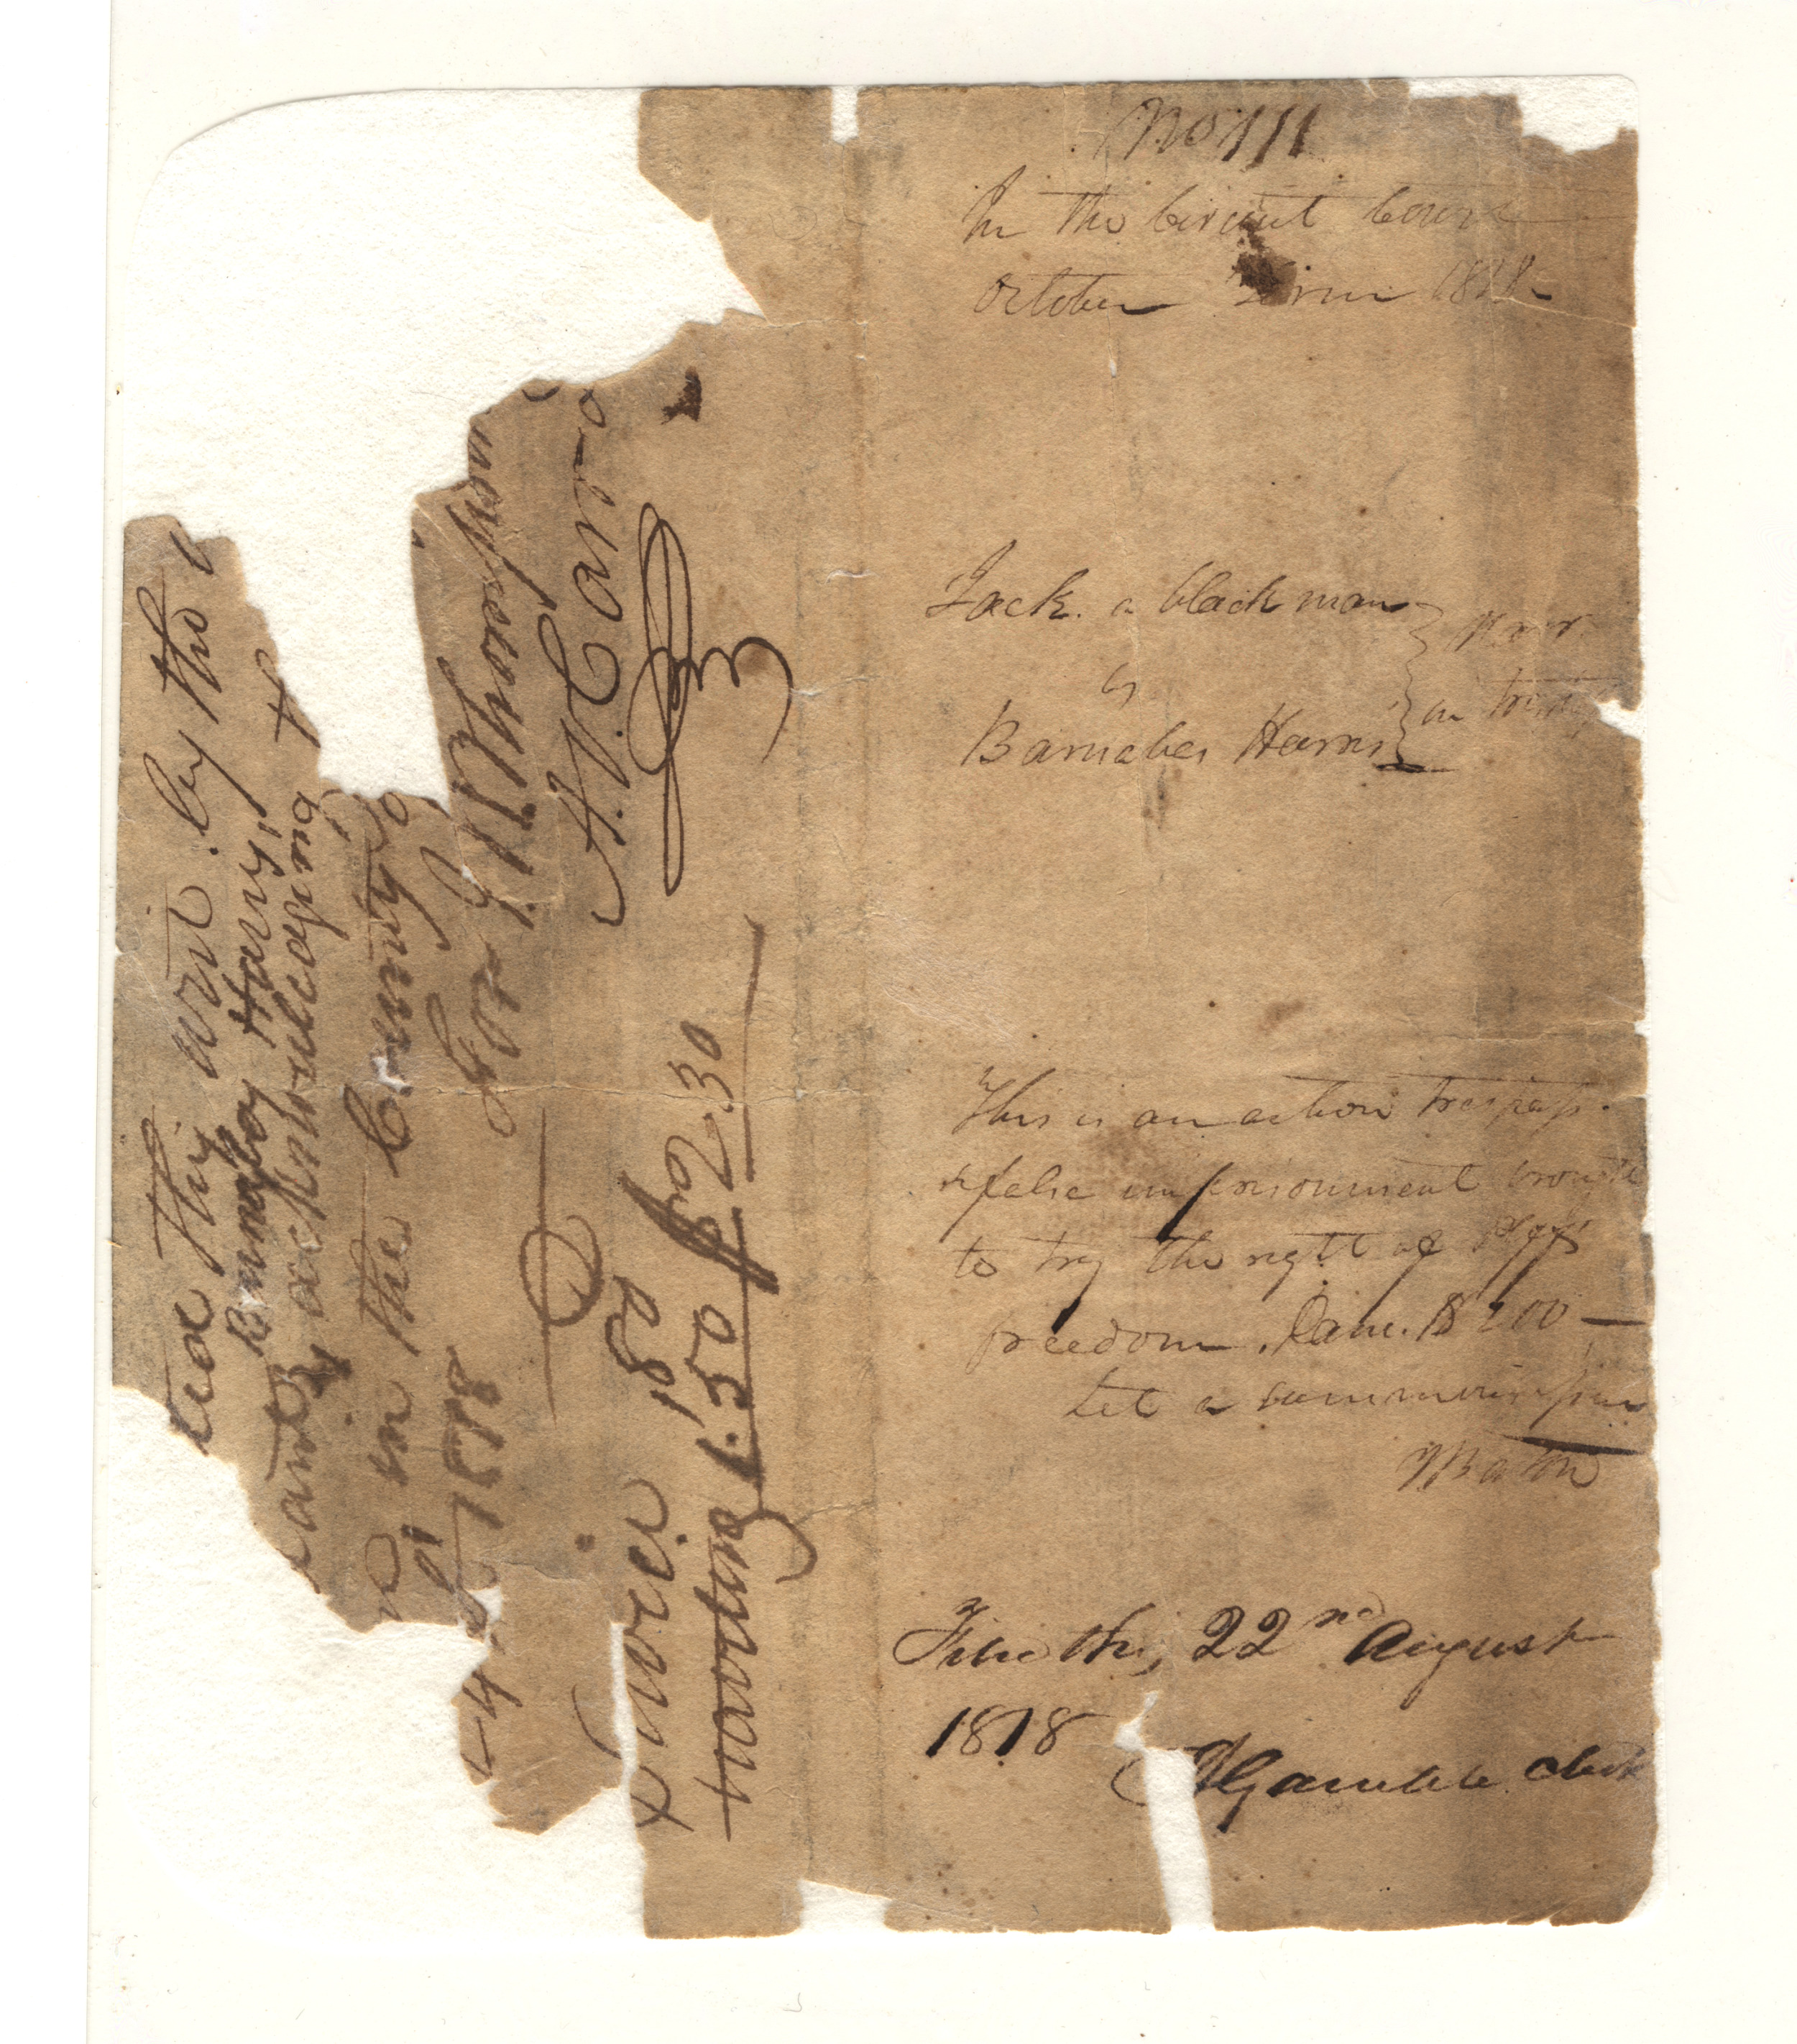 No 111
In the Circuit Court
October Term 1818-
Jack. a black man
vs
Barnabas Harris
Narr.
in tresps
This is an action trespass
& false imprisonment brought
to try the right of Plffs
freedom. Dam. $ 200 —
Let a summons issue
Filed this 22nd August
1818
A Gamble Clerk
this writ by the
Barnabas Harris,
& acknowledging
in the County
1818
for J. W. Thompson
A. V. Carr
Service ,80
$2.30
1.50